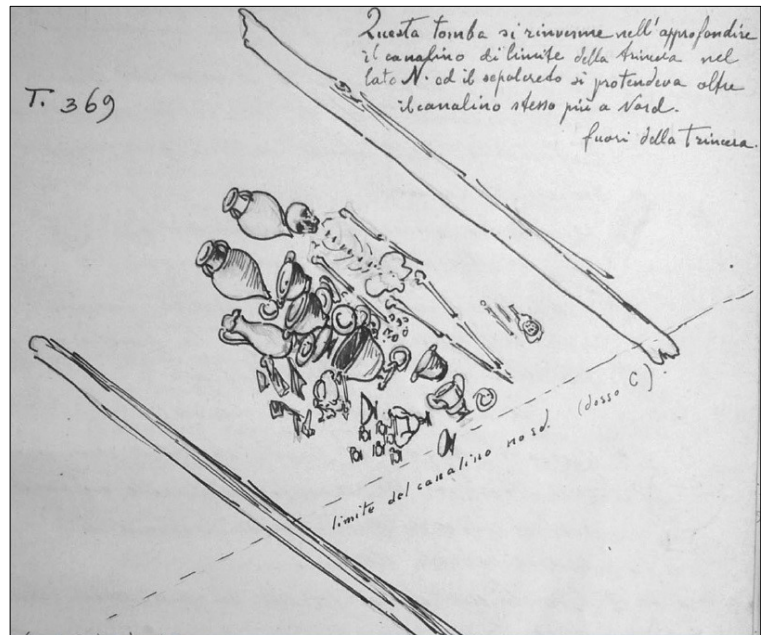 Questa tomba si rinvenne nell'approfondire
il canalino di limite della trincea nel
lato N. ed il sepolcreto si protendeva oltre
il canalino stesso più a Nord.
fuori della Trincea.
T. 369
limite del canalino nord. (dosso C).